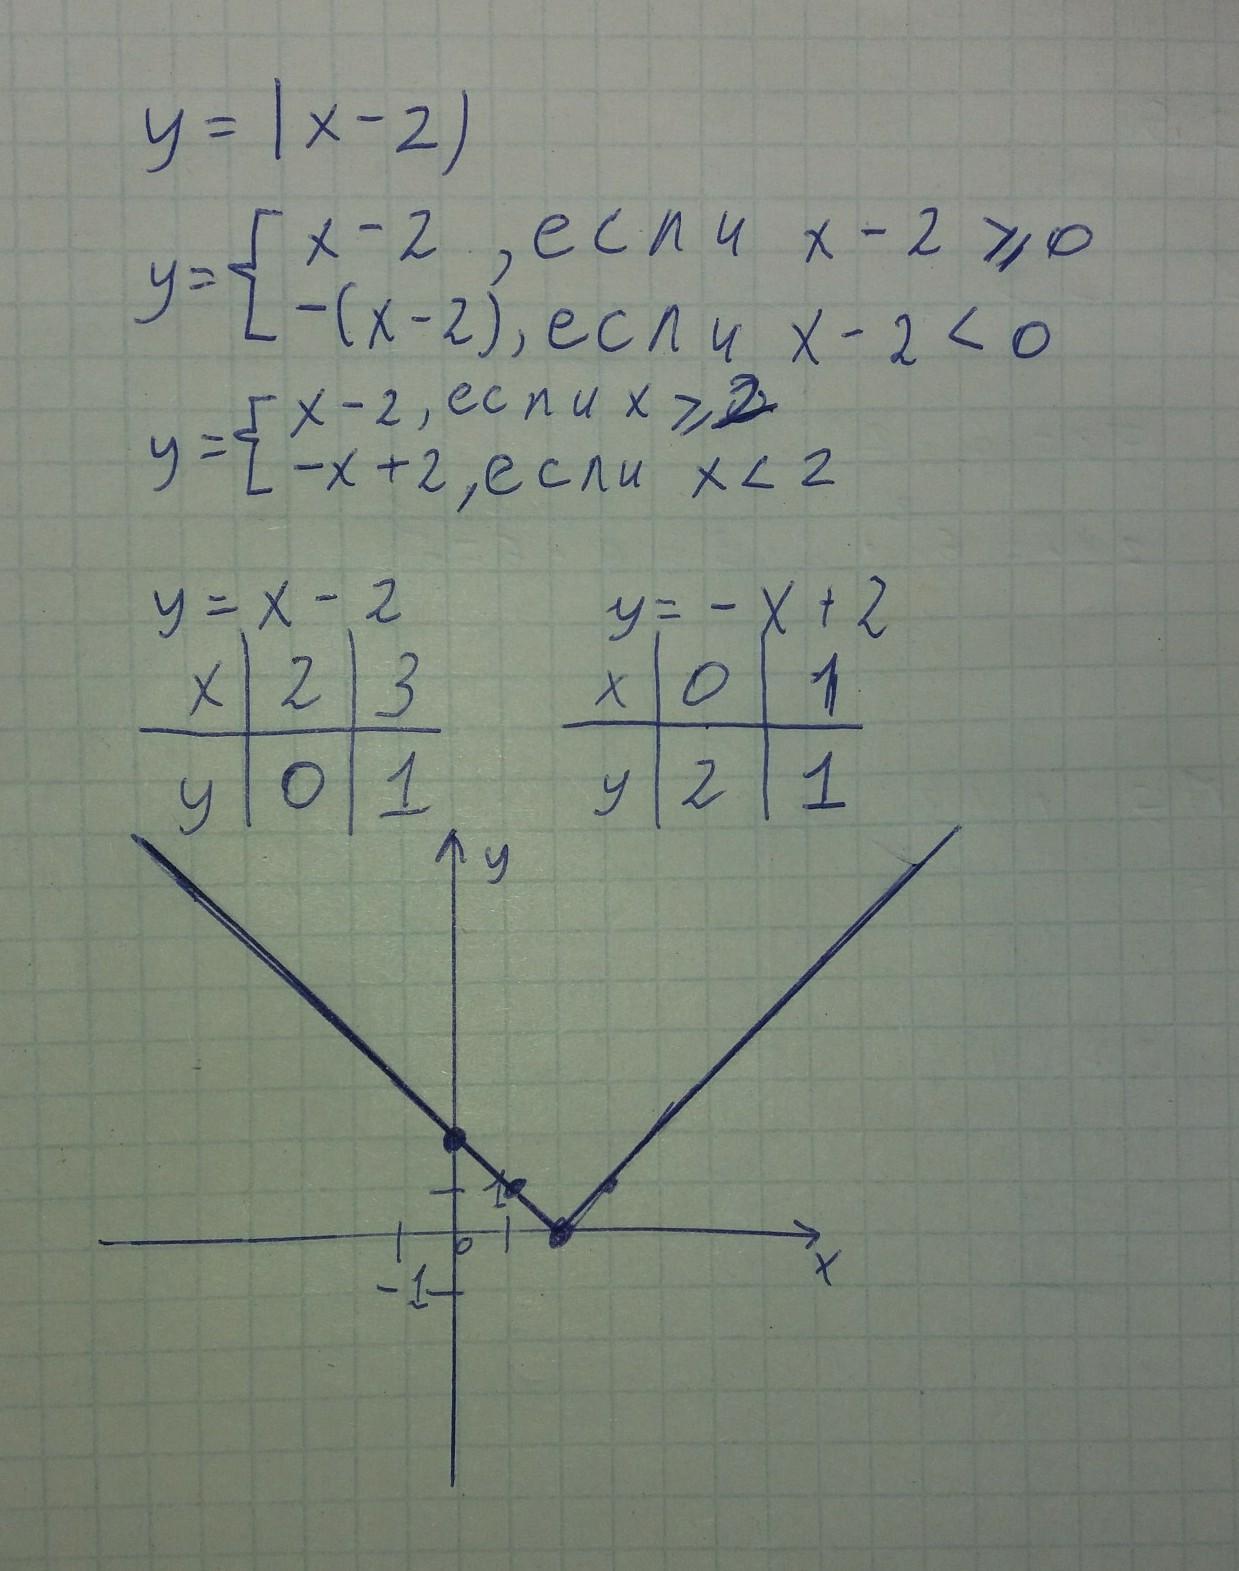 y = |x - 2|
y = { x - 2, если x - 2 ⩾ 0
-(x - 2), если x - 2 < 0
y = { x - 2, если x ⩾ 2
-x + 2, если x < 2
y = x - 2
x | 2 | 3
y | 0 | 1
y = -x + 2
x | 0 | 1
y | 2 | 1
y
1
0
x
-1